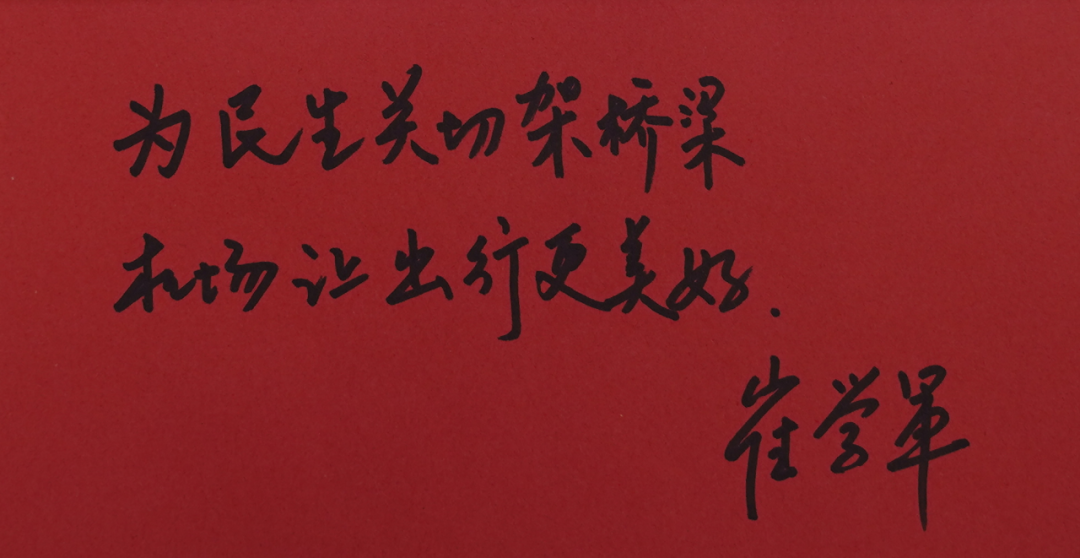 为民生关切架桥梁
机场让出行更美好.
崔学军